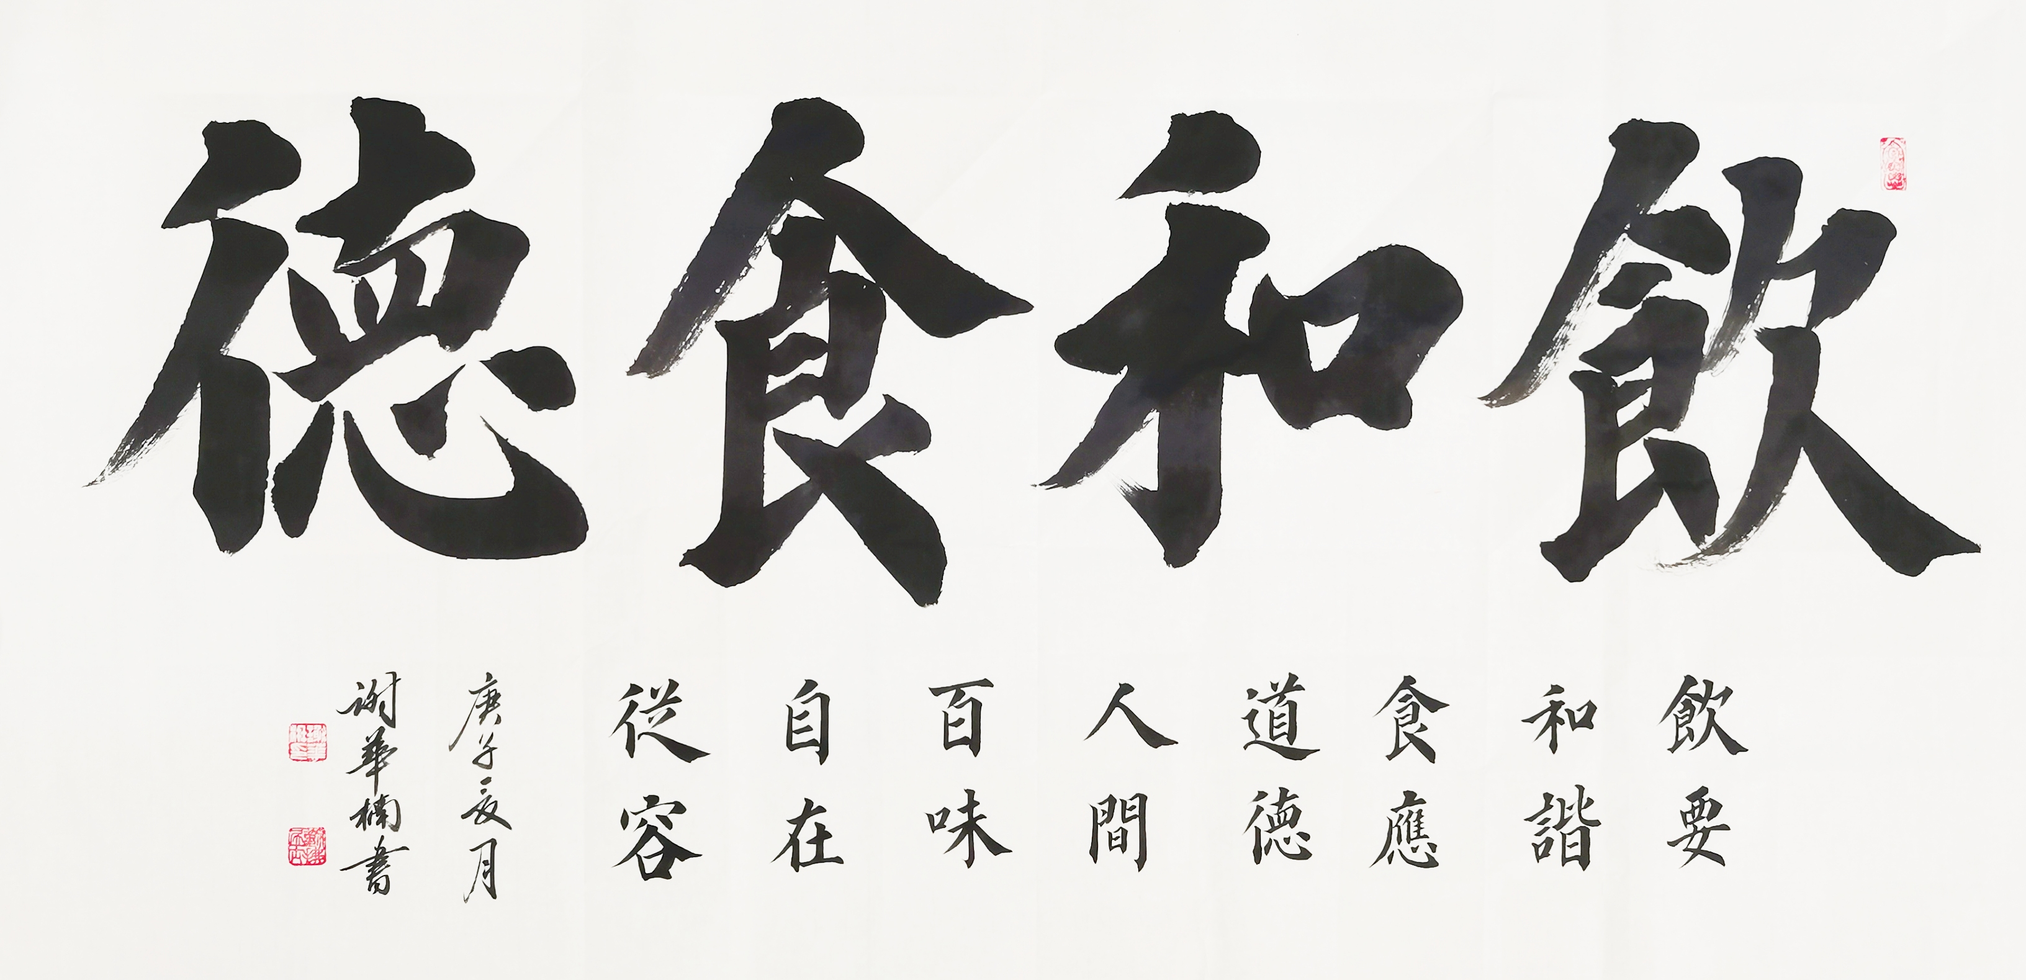 飲和食德
飲要
和諧
食應
道德
人間
百味
自在
從容
庚子亥月
謝華楠書